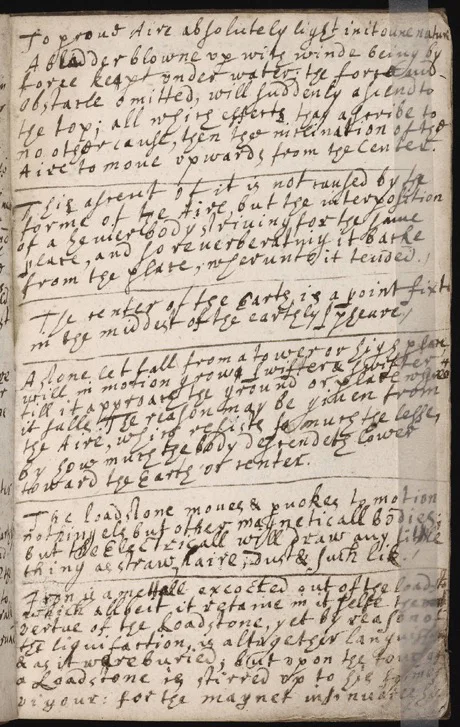 To proue Aire absolutely light in it owne nature
A bladder blowne vp with winde being by
force keapt vnder water, the force and
obstacle omitted, will suddenly ascend to
the top; all which effects they ascribe to
no other cause, then the inclination of the
Aire to moue vpwards from the Center.
This ascent of it is not caused by the
forme of the Aire, but the interposition
of a heuier body striuing for the same
place, and so reuerberating it backe
from the place, wherunto it tended.
The center of the Earth, is a point fixt
in the middest of the earthly spheare,
A stone let fall from a tower or high place
will in motion grow swifter & swifter
till it approach the ground or place where
it falls. The reason may be giuen from
the Aire, which resists so much the lesse,
by how much the body descendeth lower
toward the Earth or center.
The loadstone moues & prokes to motion
nothing els but other magneticall bodies;
but the Electricall will draw any little
thing as straw, haire, dust & such like.
Iron is a mettall excocted out of the loadst
which albeit, it retaine in it selfe the
vertue of the Loadstone, yet by reason of
the liquifaction is altogether
& as it were buried, but vpon the
a Loadstone is stirred vp to
vigour: for the magnet